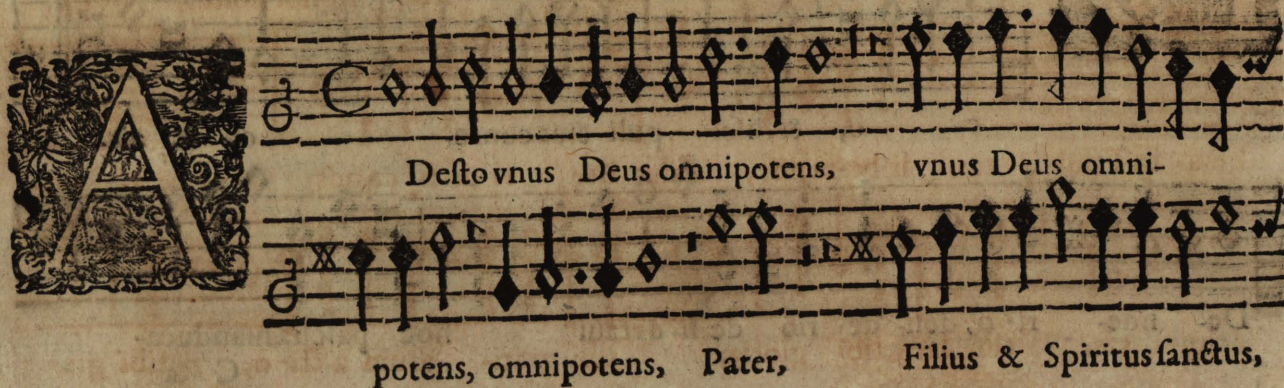 ADesto vnus Deus omnipotens, vnus Deus omni-
potens, omnipotens, Pater, Filius & Spiritus sanctus,